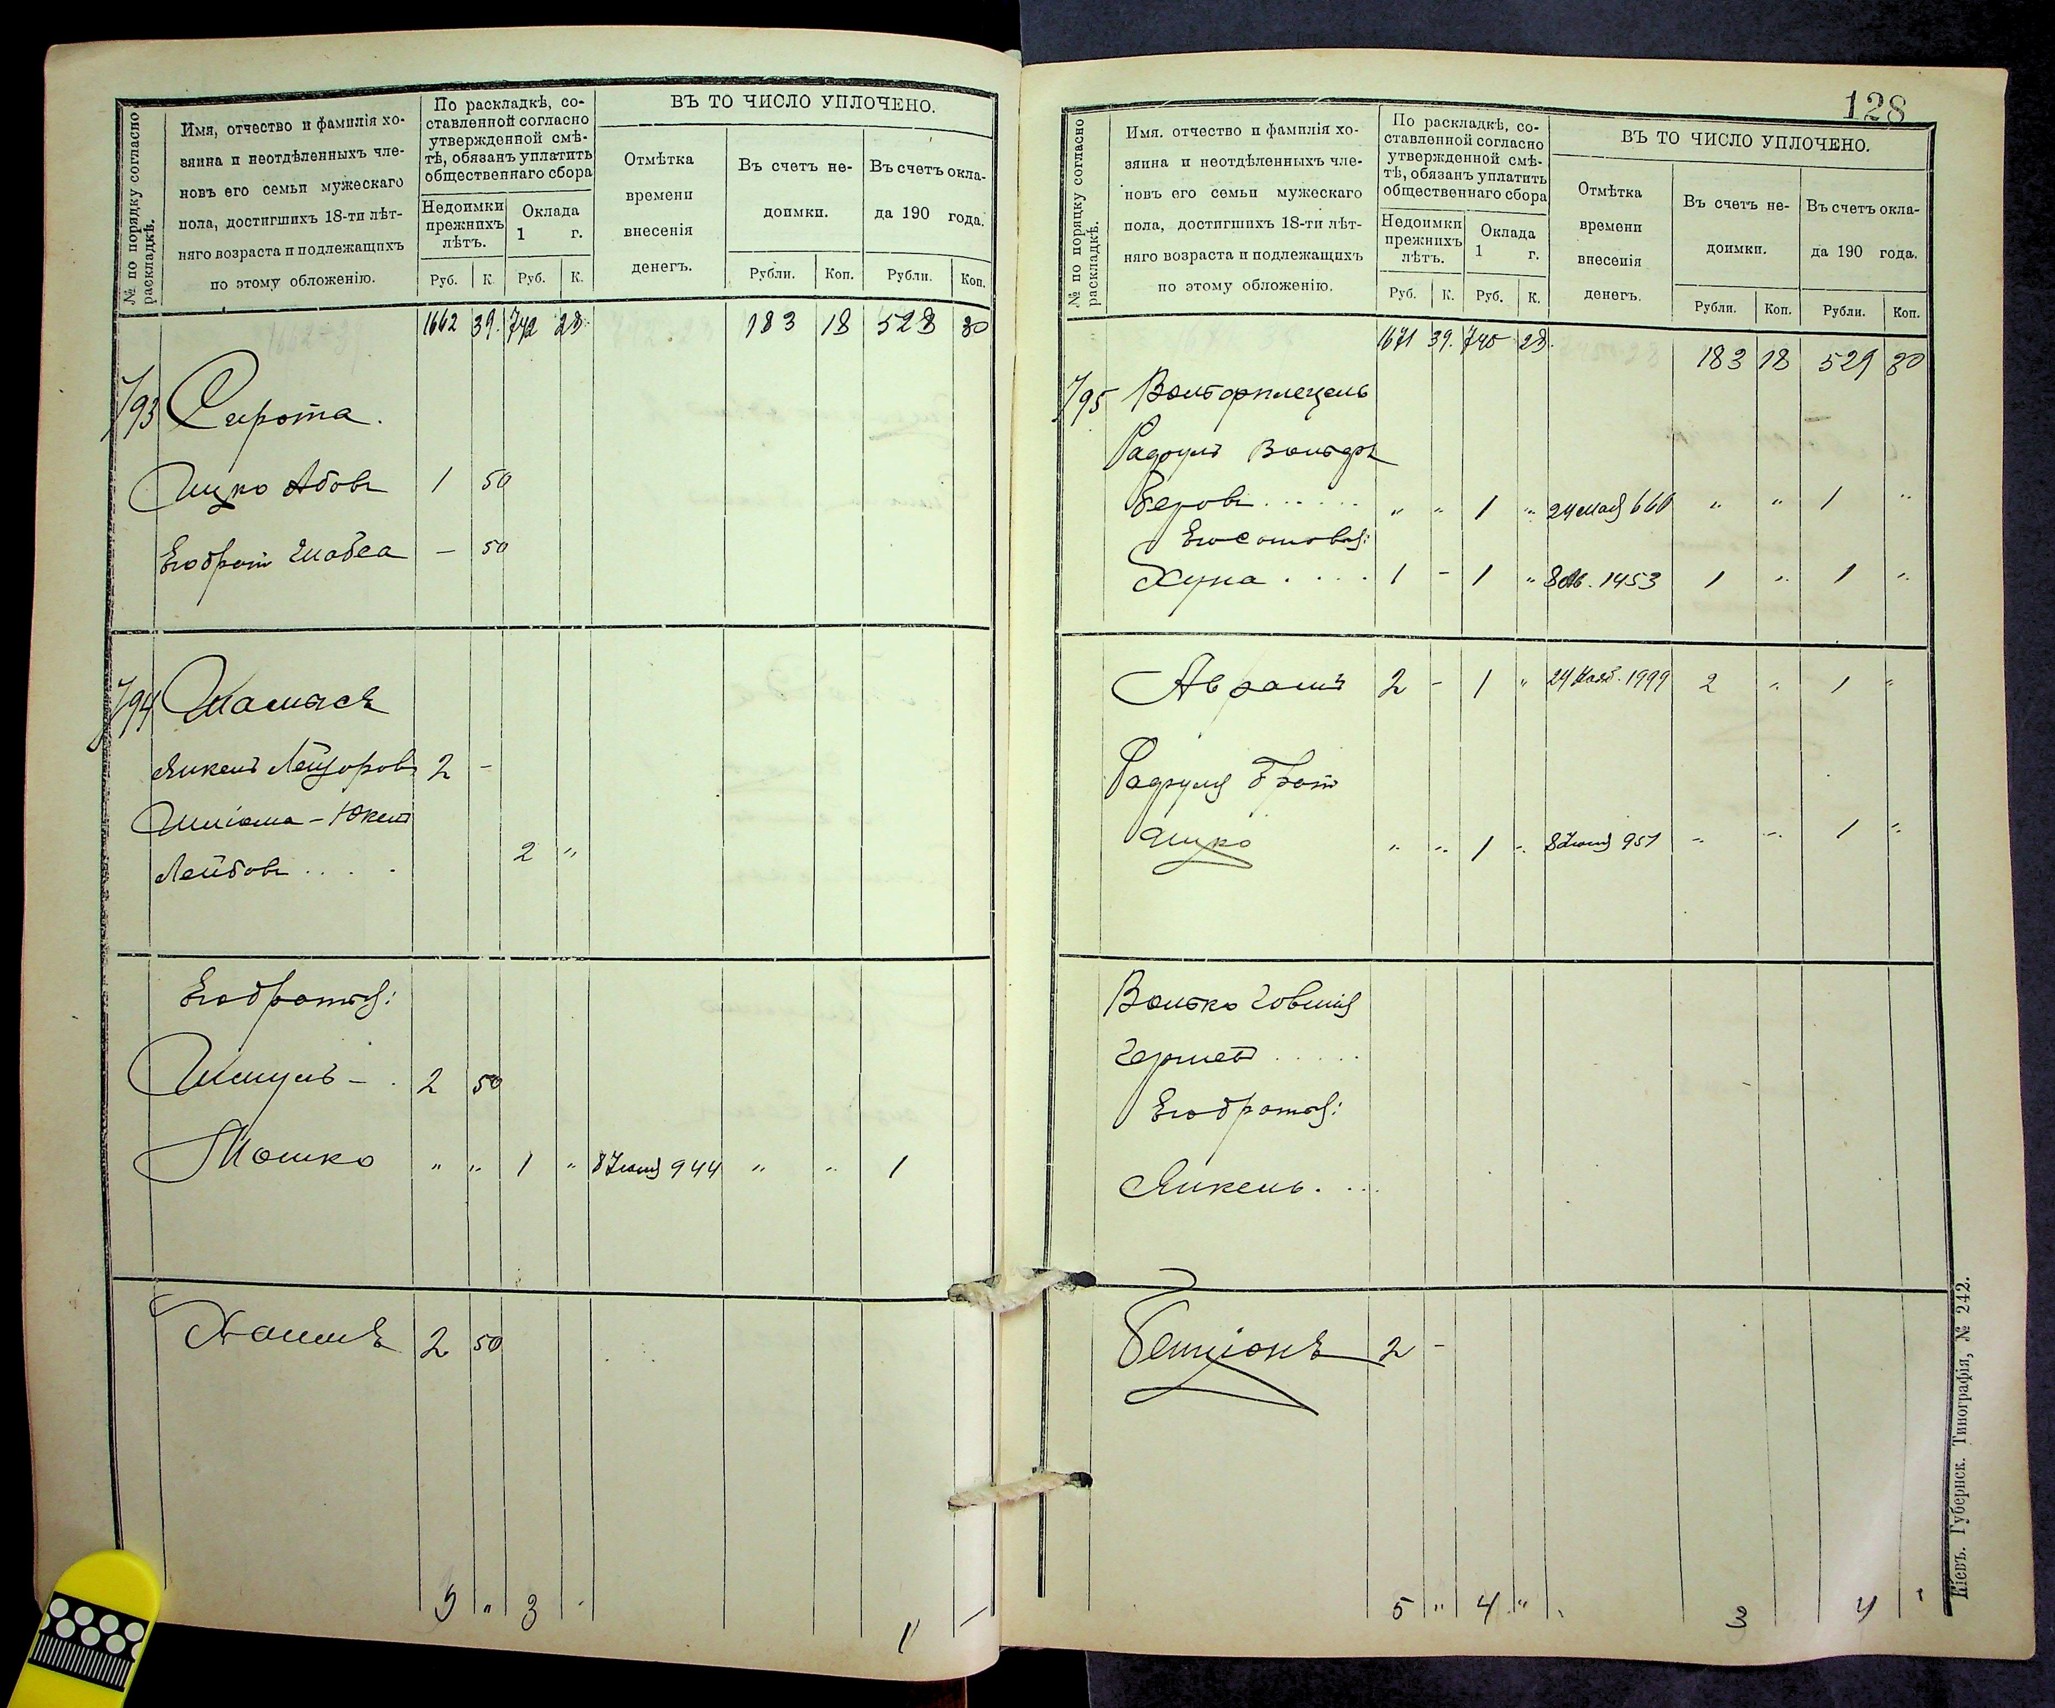 № по порядку согласно раскладкѣ.
Имя, отчество и фамилія хо-
зяина и неотдѣленныхъ чле-
новъ его семьи мужескаго
пола, достигшихъ 18-ти лѣт-
няго возраста и подлежащихъ
по этому обложенію.
По раскладкѣ, со-
ставленной согласно
утвержденной смѣ-
тѣ, обязанъ уплатить
общественнаго сбора
Недоимки прежнихъ лѣтъ.
Оклада 1 г.
Руб. К. Руб. К.
ВЪ ТО ЧИСЛО УПЛОЧЕНО.
Отмѣтка
времени
внесенія
денегъ.
Въ счетъ не-
доимки.
Въ счетъ окла-
да 190 года.
Рубли. Коп. Рубли. Коп.
1662 39. 742 28. 183 18 528 80
793 Сирота.
Ицко Абовъ 1 50
Его братъ Шабса — 50
794
Янкель Лейзоровъ 2 -
Лейбовъ . . . . 2 "
Его братья:
Шмуль - . 2 50
Мошко " " 1 " 8 Іюня 944 " " 1
2 50
9 " 3 1 —
128
№ по порядку согласно раскладкѣ.
Имя, отчество и фамилія хо-
зяина и неотдѣленныхъ чле-
новъ его семьи мужескаго
пола, достигшихъ 18-ти лѣт-
няго возраста и подлежащихъ
по этому обложенію.
По раскладкѣ, со-
ставленной согласно
утвержденной смѣ-
тѣ, обязанъ уплатить
общественнаго сбора
Недоимки прежнихъ лѣтъ.
Оклада 1 г.
Руб. К. Руб. К.
ВЪ ТО ЧИСЛО УПЛОЧЕНО.
Отмѣтка
времени
внесенія
денегъ.
Въ счетъ не-
доимки.
Въ счетъ окла-
да 190 года.
Рубли. Коп. Рубли. Коп.
1671 39. 745 28. 183 18 529 80
795
Беровъ . . . . . . " " 1 " 24 Мая 666 " " 1 "
Его сыновья:
Хуна . . . . 1 - 1 " 8 Ав. 1453 1 " 1 "
Аврамъ 2 - 1 " 29 Нояб. 1999 2 " 1 "
Фадуля братъ
Ицко " " 1 " 8 Іюня 951 " " 1 "
Волько Говшія
Гершевъ . . . . .
Его братья:
Янкель. . . .
Бенціонъ 2 -
5 " 4 " 3 4
Кіевъ. Губернск. Типографія, № 242.